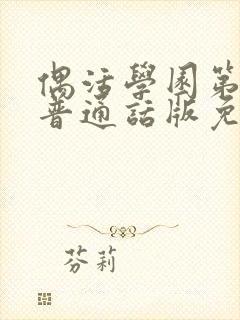 偶活學園第
普通話版免
芬莉